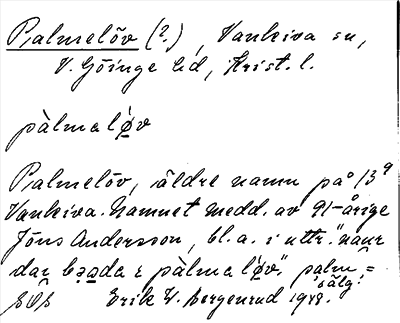 Palmelöv (?), Vankiva sn,
V. Göinge hd, Krist. l.
pàlmaløv
Palmelöv, äldre namn på 13⁹
Vankiva. Namnet medd. av 91-årige
Jöns Andersson, bl.a. i uttr. "naur
dar bada i pàlmaløv." palm =
'sälg'
Erik W. Bergenrud 1948.